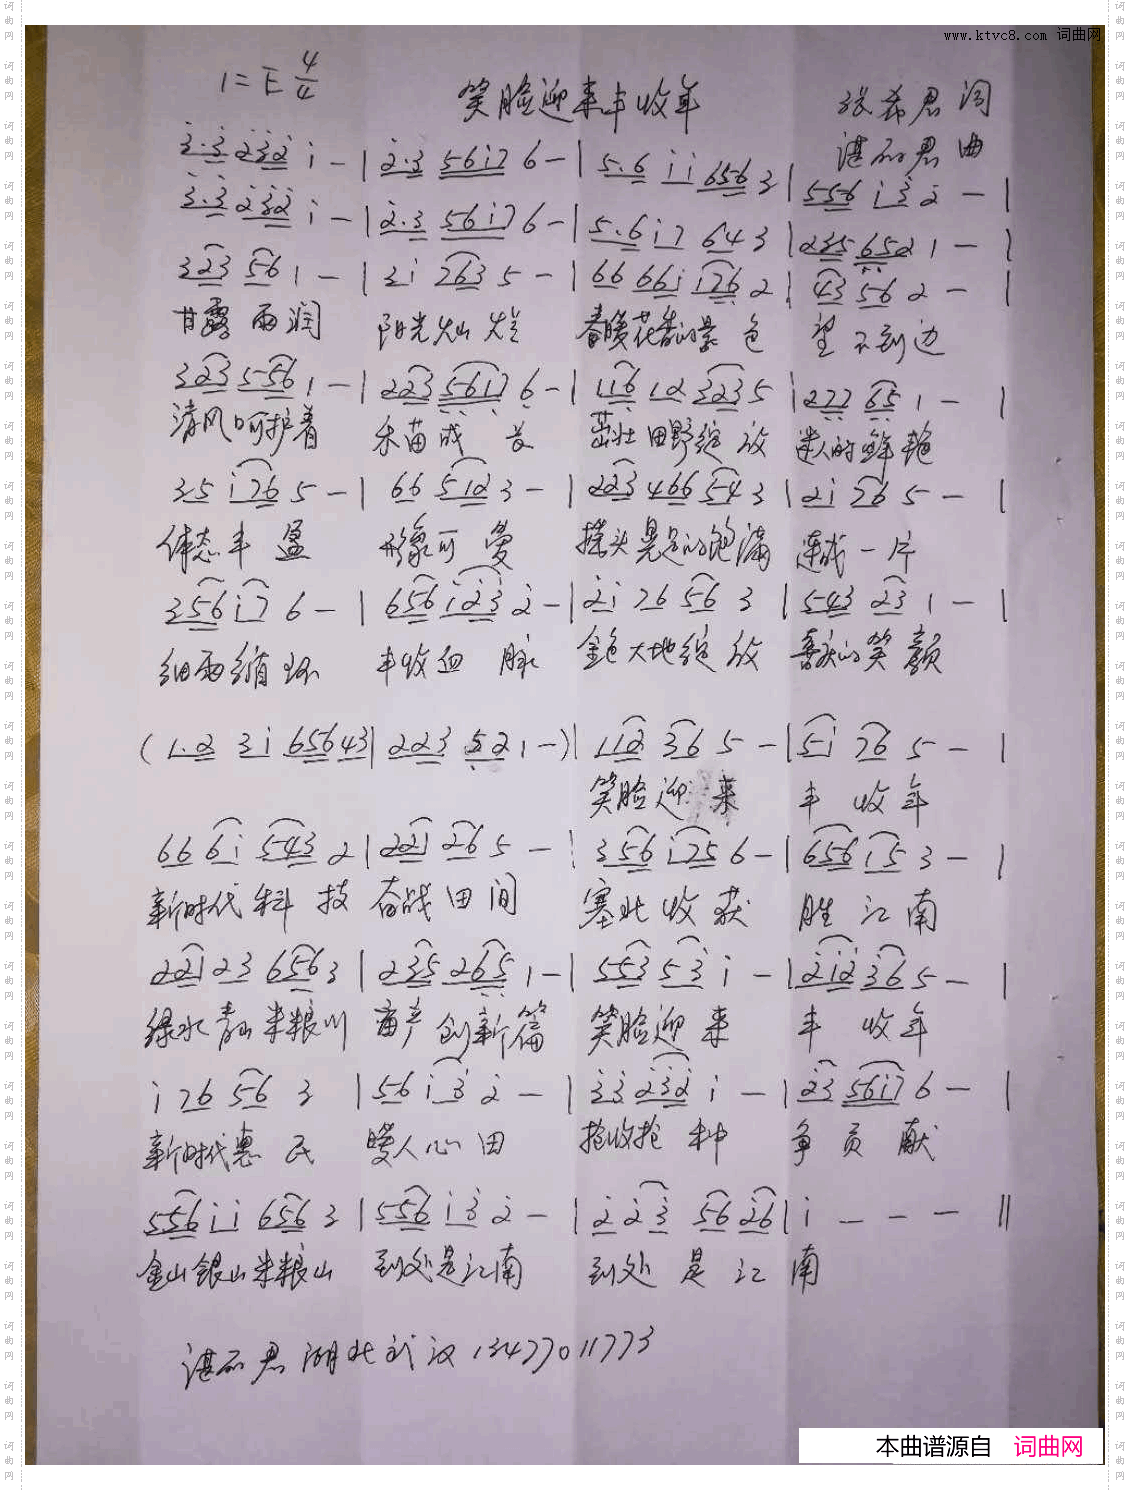 www.ktvc8.com 词曲网
1=E 4/4
笑脸迎来丰收年
张希君 词
谌丽君 曲
3·3 232 1 — | 2·3 5617 6 — | 5·6 11 656 3 | 556 13 2 — |
3·3 232 1 — | 2·3 5617 6 — | 5·617 643 | 235 6521 — |
323 56 1 — | 31 263 5 — | 66 661 176 2 | 43 56 2 — |
甘露雨润 阳光灿烂 春暖花香的景色 望不到边
323 556 1 — | 223 5617 6 — | 116 12 323 5 | 1277 65 1 — |
清风呵护着 禾苗成长 茁壮田野绽放 迷人的鲜艳
35 176 5 — | 66 512 3 — | 223 466 54 3 | 21 76 5 — |
体态丰盈 形象可曼 摇头晃足的饱满 连成一片
356 17 6 — | 656 123 2 — | 21 76 56 3 | 543 23 1 — |
细雨循环 丰收血脉 金色大地绽放 喜庆的笑颜
(1·2 31 656 43 | 223 521 —) | 112 36 5 — | 51 76 5 — |
笑脸迎来 丰收年
66 61 543 2 | 221 26 5 — | 356 175 6 — | 656 15 3 — |
新时代科技 奋战田间 塞北收获 胜江南
221 23 656 3 | 235 265 1 — | 553 53 1 — | 212 36 5 — |
绿水青山米粮川 亩产创新篇 笑脸迎来 丰收年
1 76 56 3 | 56 13 2 — | 33 232 1 — | 23 5617 6 — |
新时代惠民 暖人心田 抢收抢种 争贡献
556 11 656 3 | 556 13 2 — | 2 23 56 26 | 1 — — — ‖
金山银山米粮山 到处是江南 到处是江南
谌丽君 湖北武汉 13477011773
本曲谱源自 词曲网